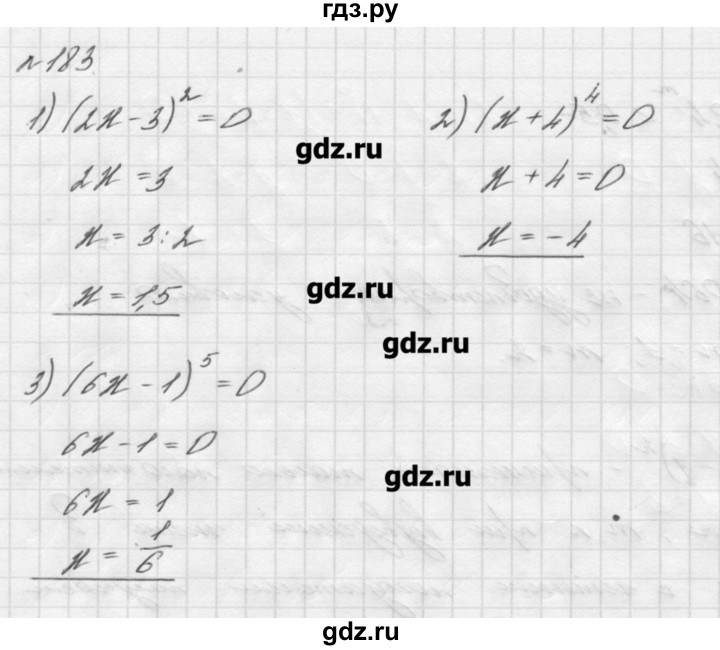 гдз.ру
№183
1) (2x-3)^2=0
2x=3
x=3:2
x=1,5
2) (x+4)^4=0
x+4=0
x=-4
3) (6x-1)^5=0
6x-1=0
6x=1
x=1/6
gdz.ru
gdz.ru
gdz.ru
gdz.ru
gdz.ru